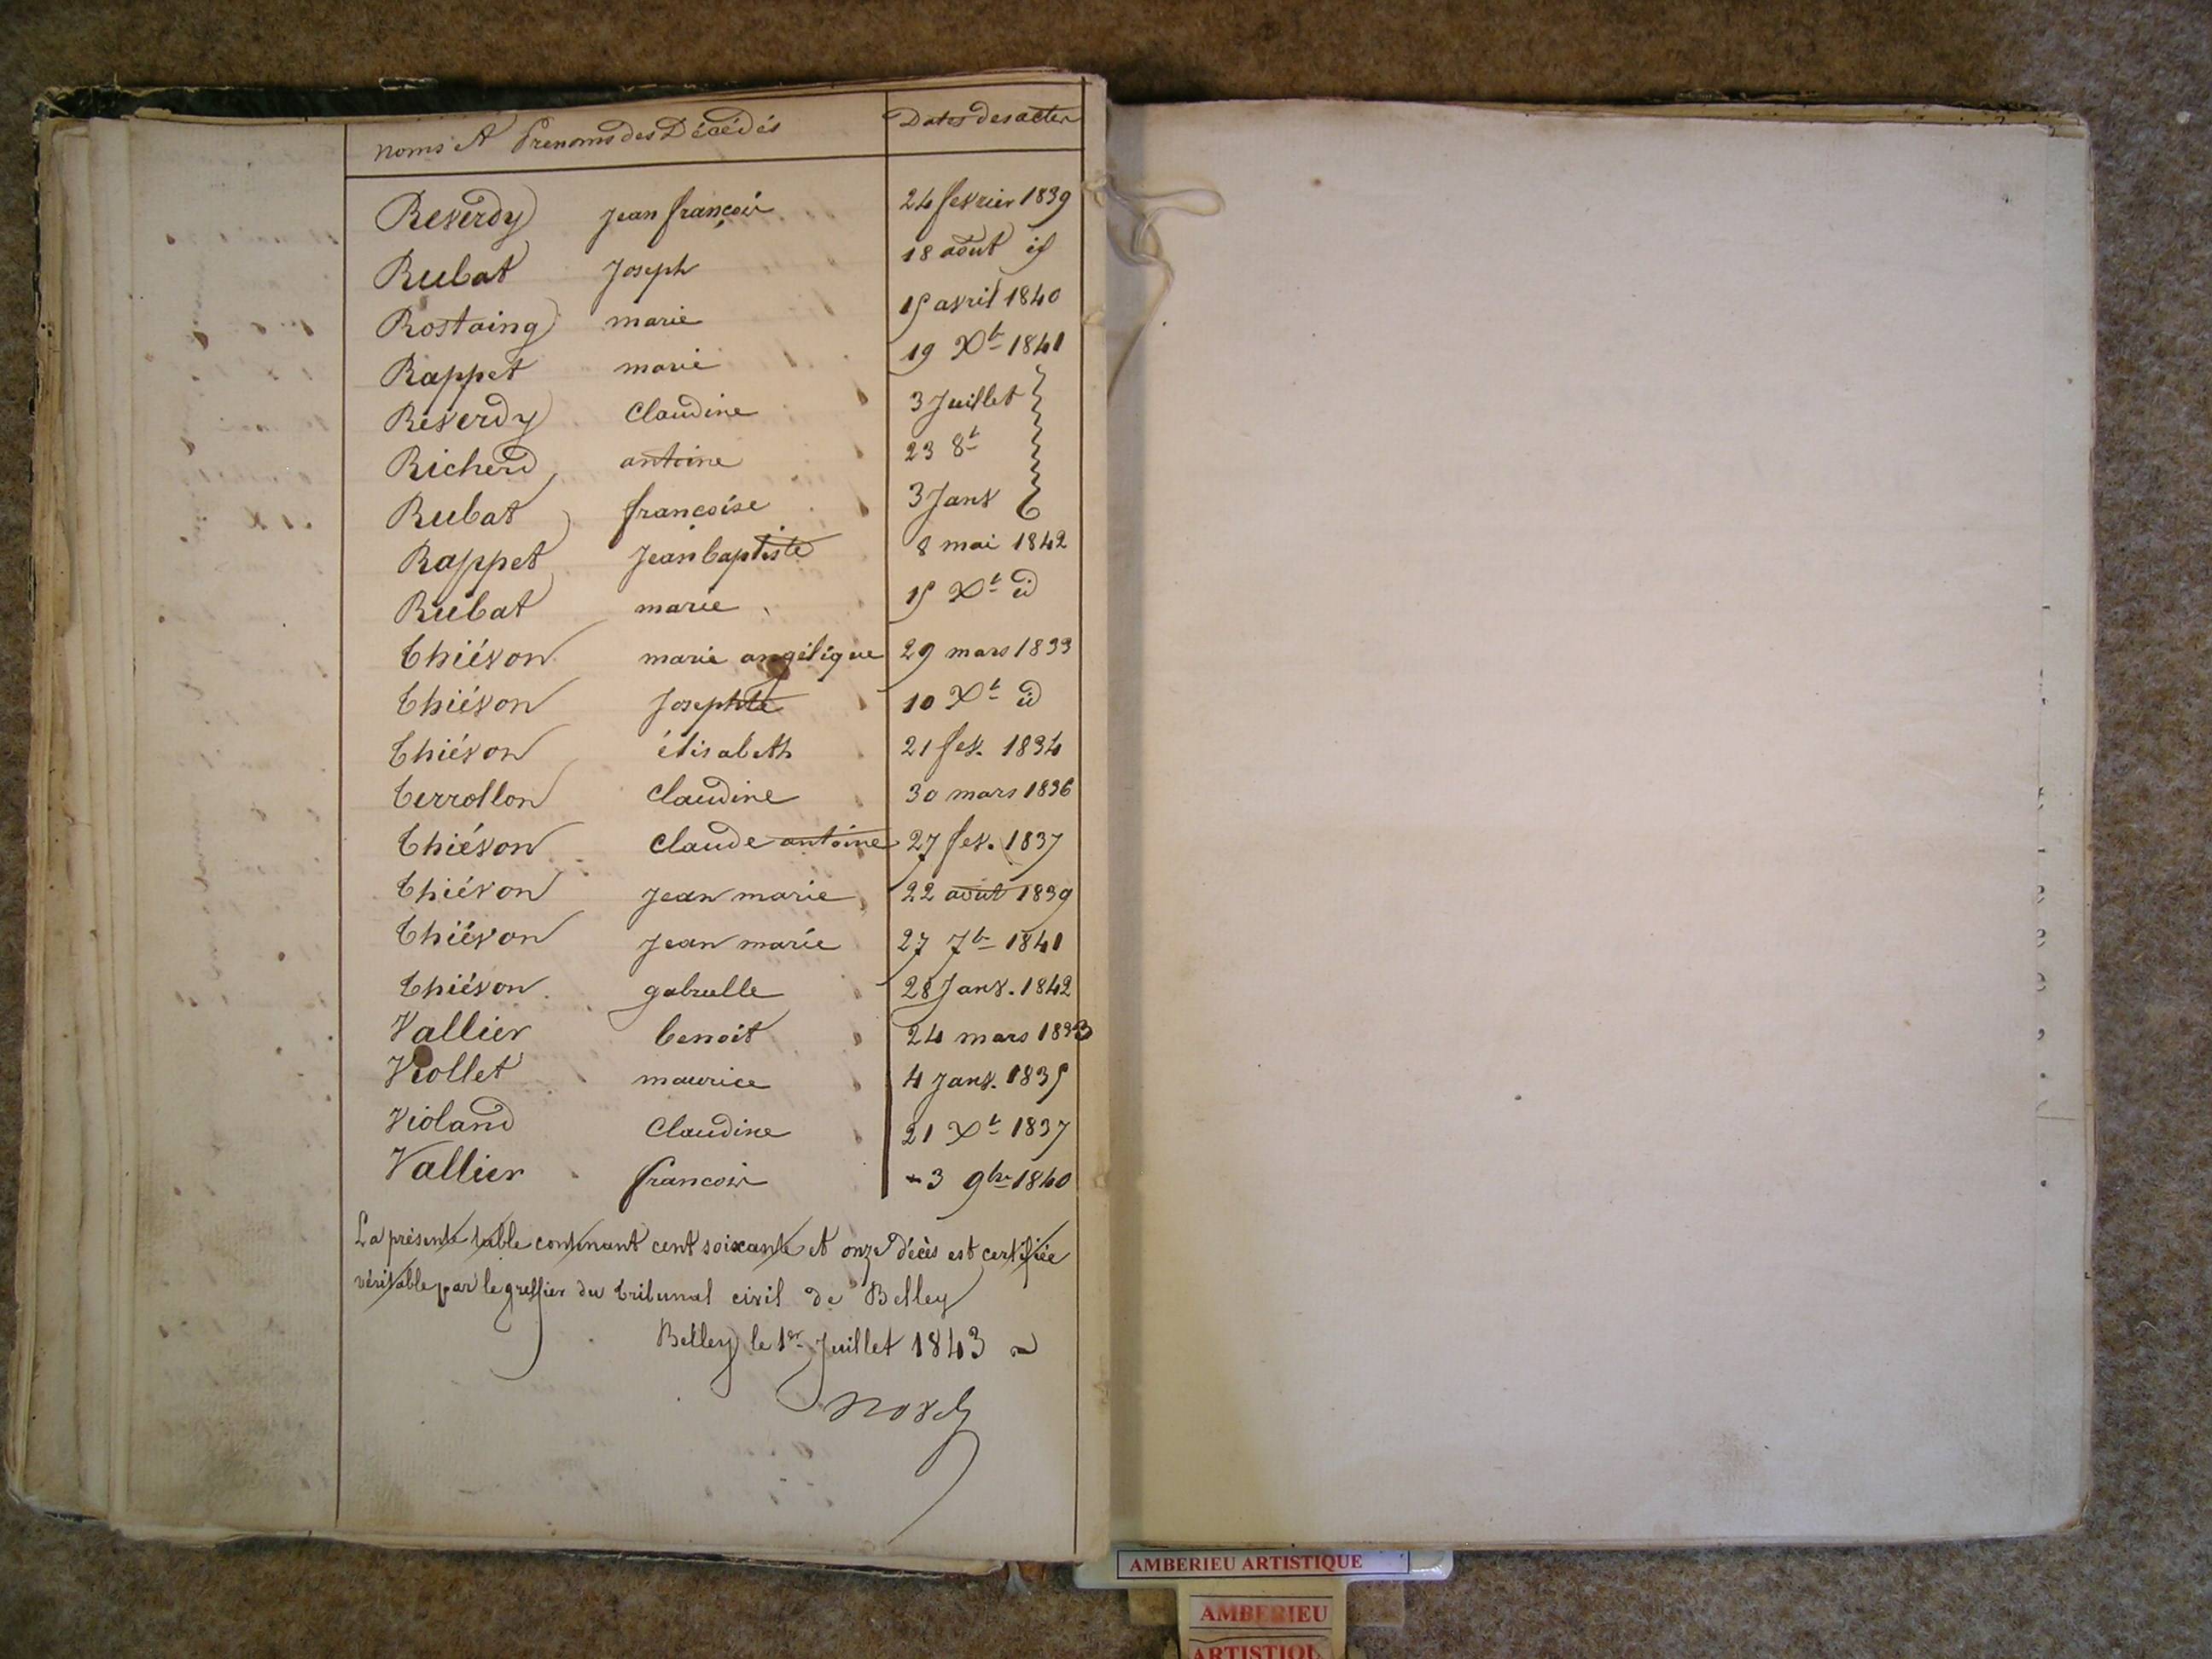 noms et Prenoms des Décédés Dates des actes
Reverdy jean françois 24 fevrier 1839
Rubat Joseph 18 août id
Rostaing marie 15 avril 1840
Rappet marie 19 Xb 1841
Reverdy Claudine 3 Juillet
Richerd antoine 23 8b
Rubat francoise 3 Janv
Rappet Jean baptiste 8 mai 1842
Rubat marie 15 Xb id
Thiévon marie angélique 29 mars 1833
Thiévon Josephte 10 Xb id
Thiévon élisabeth 21 fev. 1834
Terrollon Claudine 30 mars 1836
Thiévon Claude antoine 27 fev. 1837
Thiévon Jean marie 22 août 1839
Thiévon Jean marie 27 7b 1841
Thiévon gabrielle 28 Janv. 1842
Vallier benoit 24 mars 1833
Viollet maurice 4 Janv. 1835
Violand Claudine 21 Xb 1837
Vallier francois 3 9bre 1840
La présente table contenant cent soixante et onze décès est certifiée
véritable par le greffier du tribunal civil de Belley
Belley le 1er Juillet 1843
AMBERIEU ARTISTIQUE
AMBERIEU
ARTISTIQU